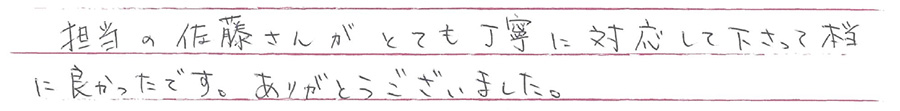 担当の佐藤さんがとても丁寧に対応して下さって本当
に良かったです。ありがとうございました。